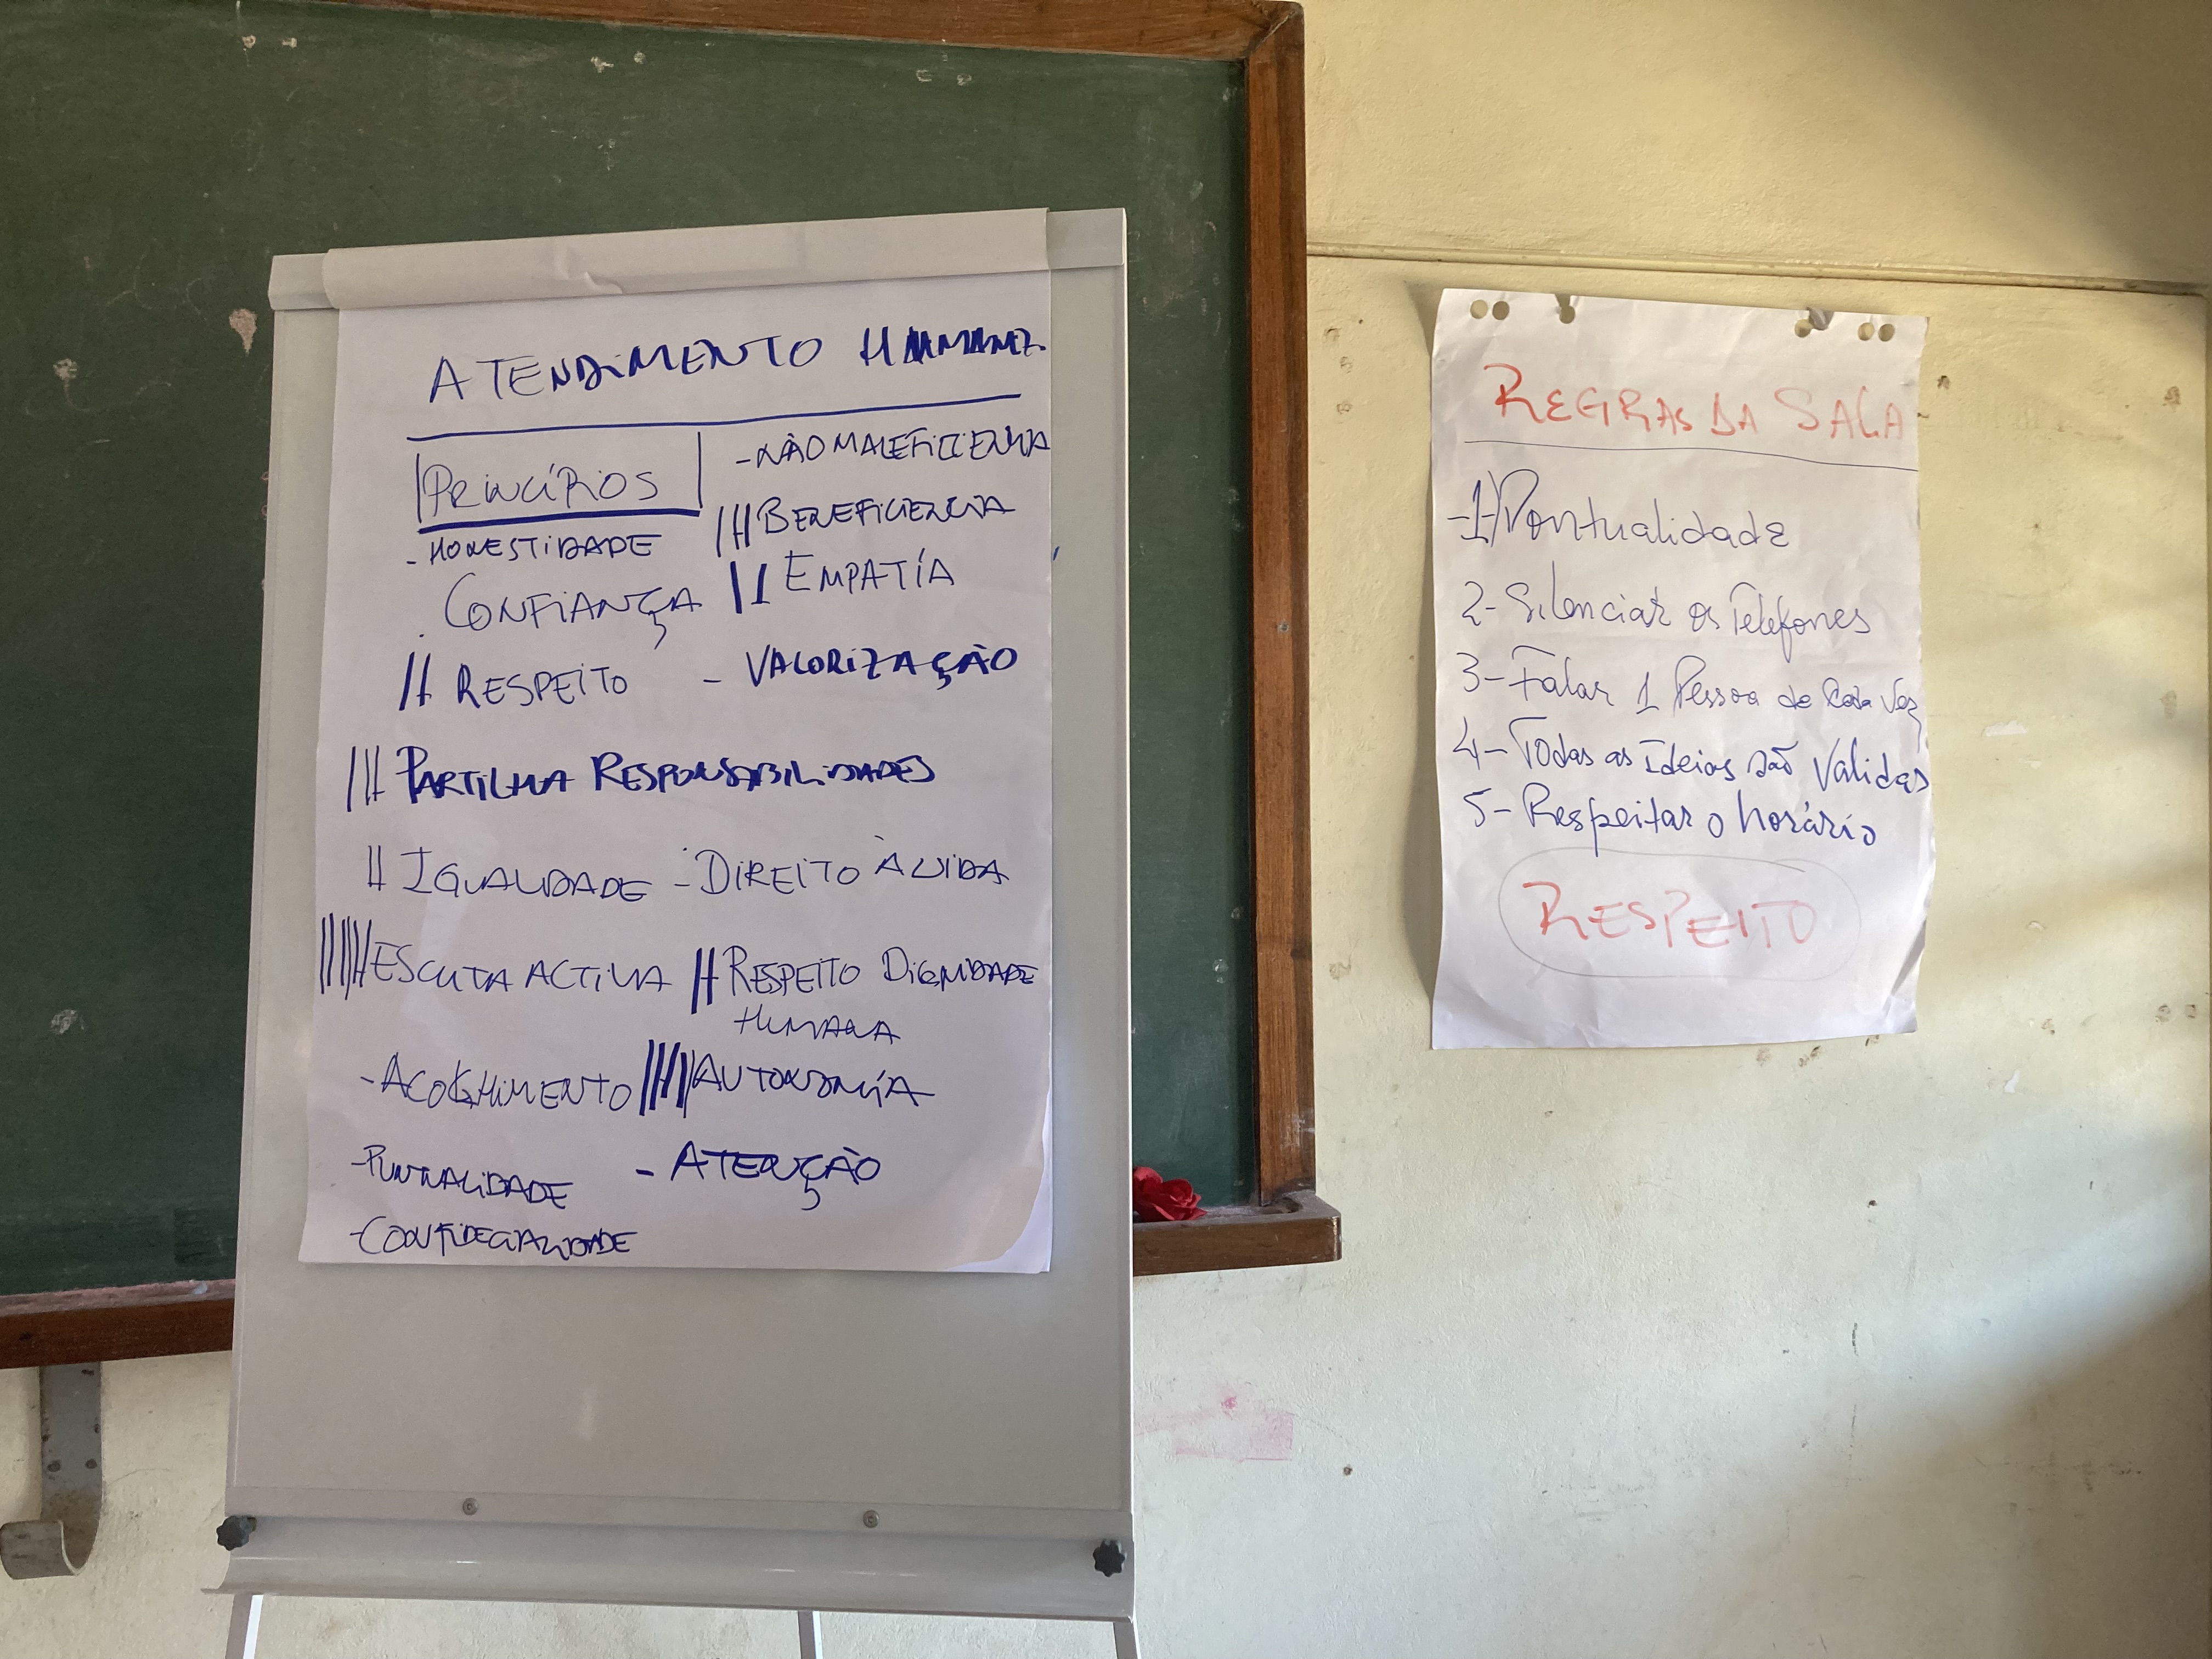 ATENDIMENTO HUMANIZ.
PRINCÍPIOS
- NÃO MALEFICIENCIA
- HONESTIDADE
BENEFICIENCIA
CONFIANÇA
EMPATÍA
RESPEITO - VALORIZAÇÃO
PARTILHA RESPONSABILIDADES
IGUALDADE - DIREITO À VIDA
ESCUTA ACTIVA
RESPEITO DIGNIDADE
HUMANA
- ACOLHIMENTO
AUTONOMÍA
- PUNTUALIDADE
- ATENÇÃO
- CONFIDECIALIDADE
REGRAS DA SALA
-1) Pontualidade
2- Silenciar os Telefones
3- Falar 1 Pessoa de Cada Vez
4- Todas as Ideias são Validas
5- Respeitar o horário
RESPEITO